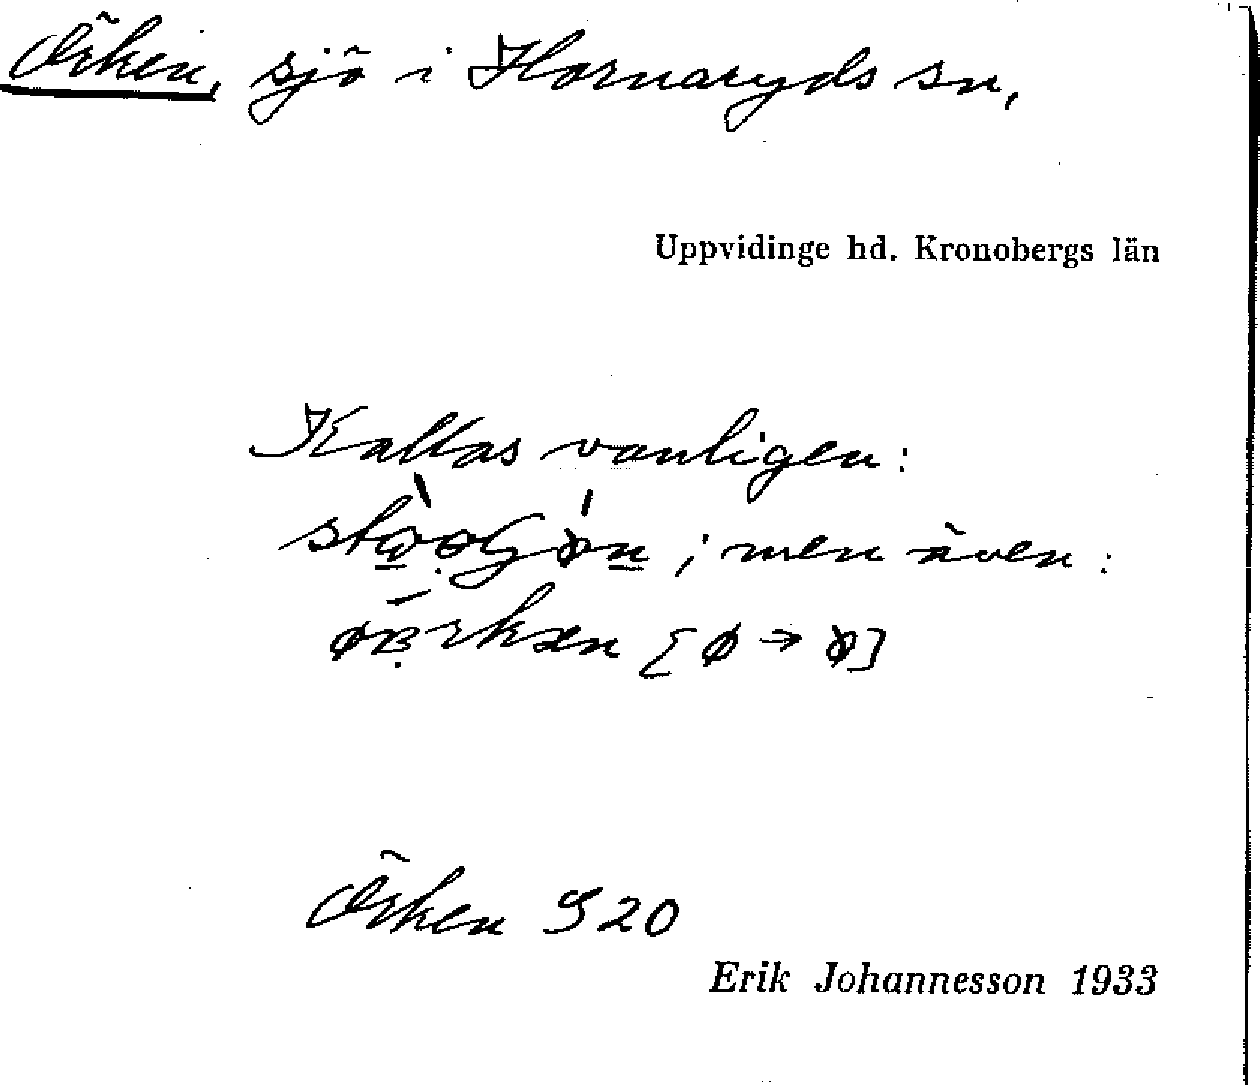 Örken, sjö i Hornaryds sn,
Uppvidinge hd. Kronobergs län
Kallas vanligen:
; men även:
[ø → ø]
Örken S20
Erik Johannesson 1933